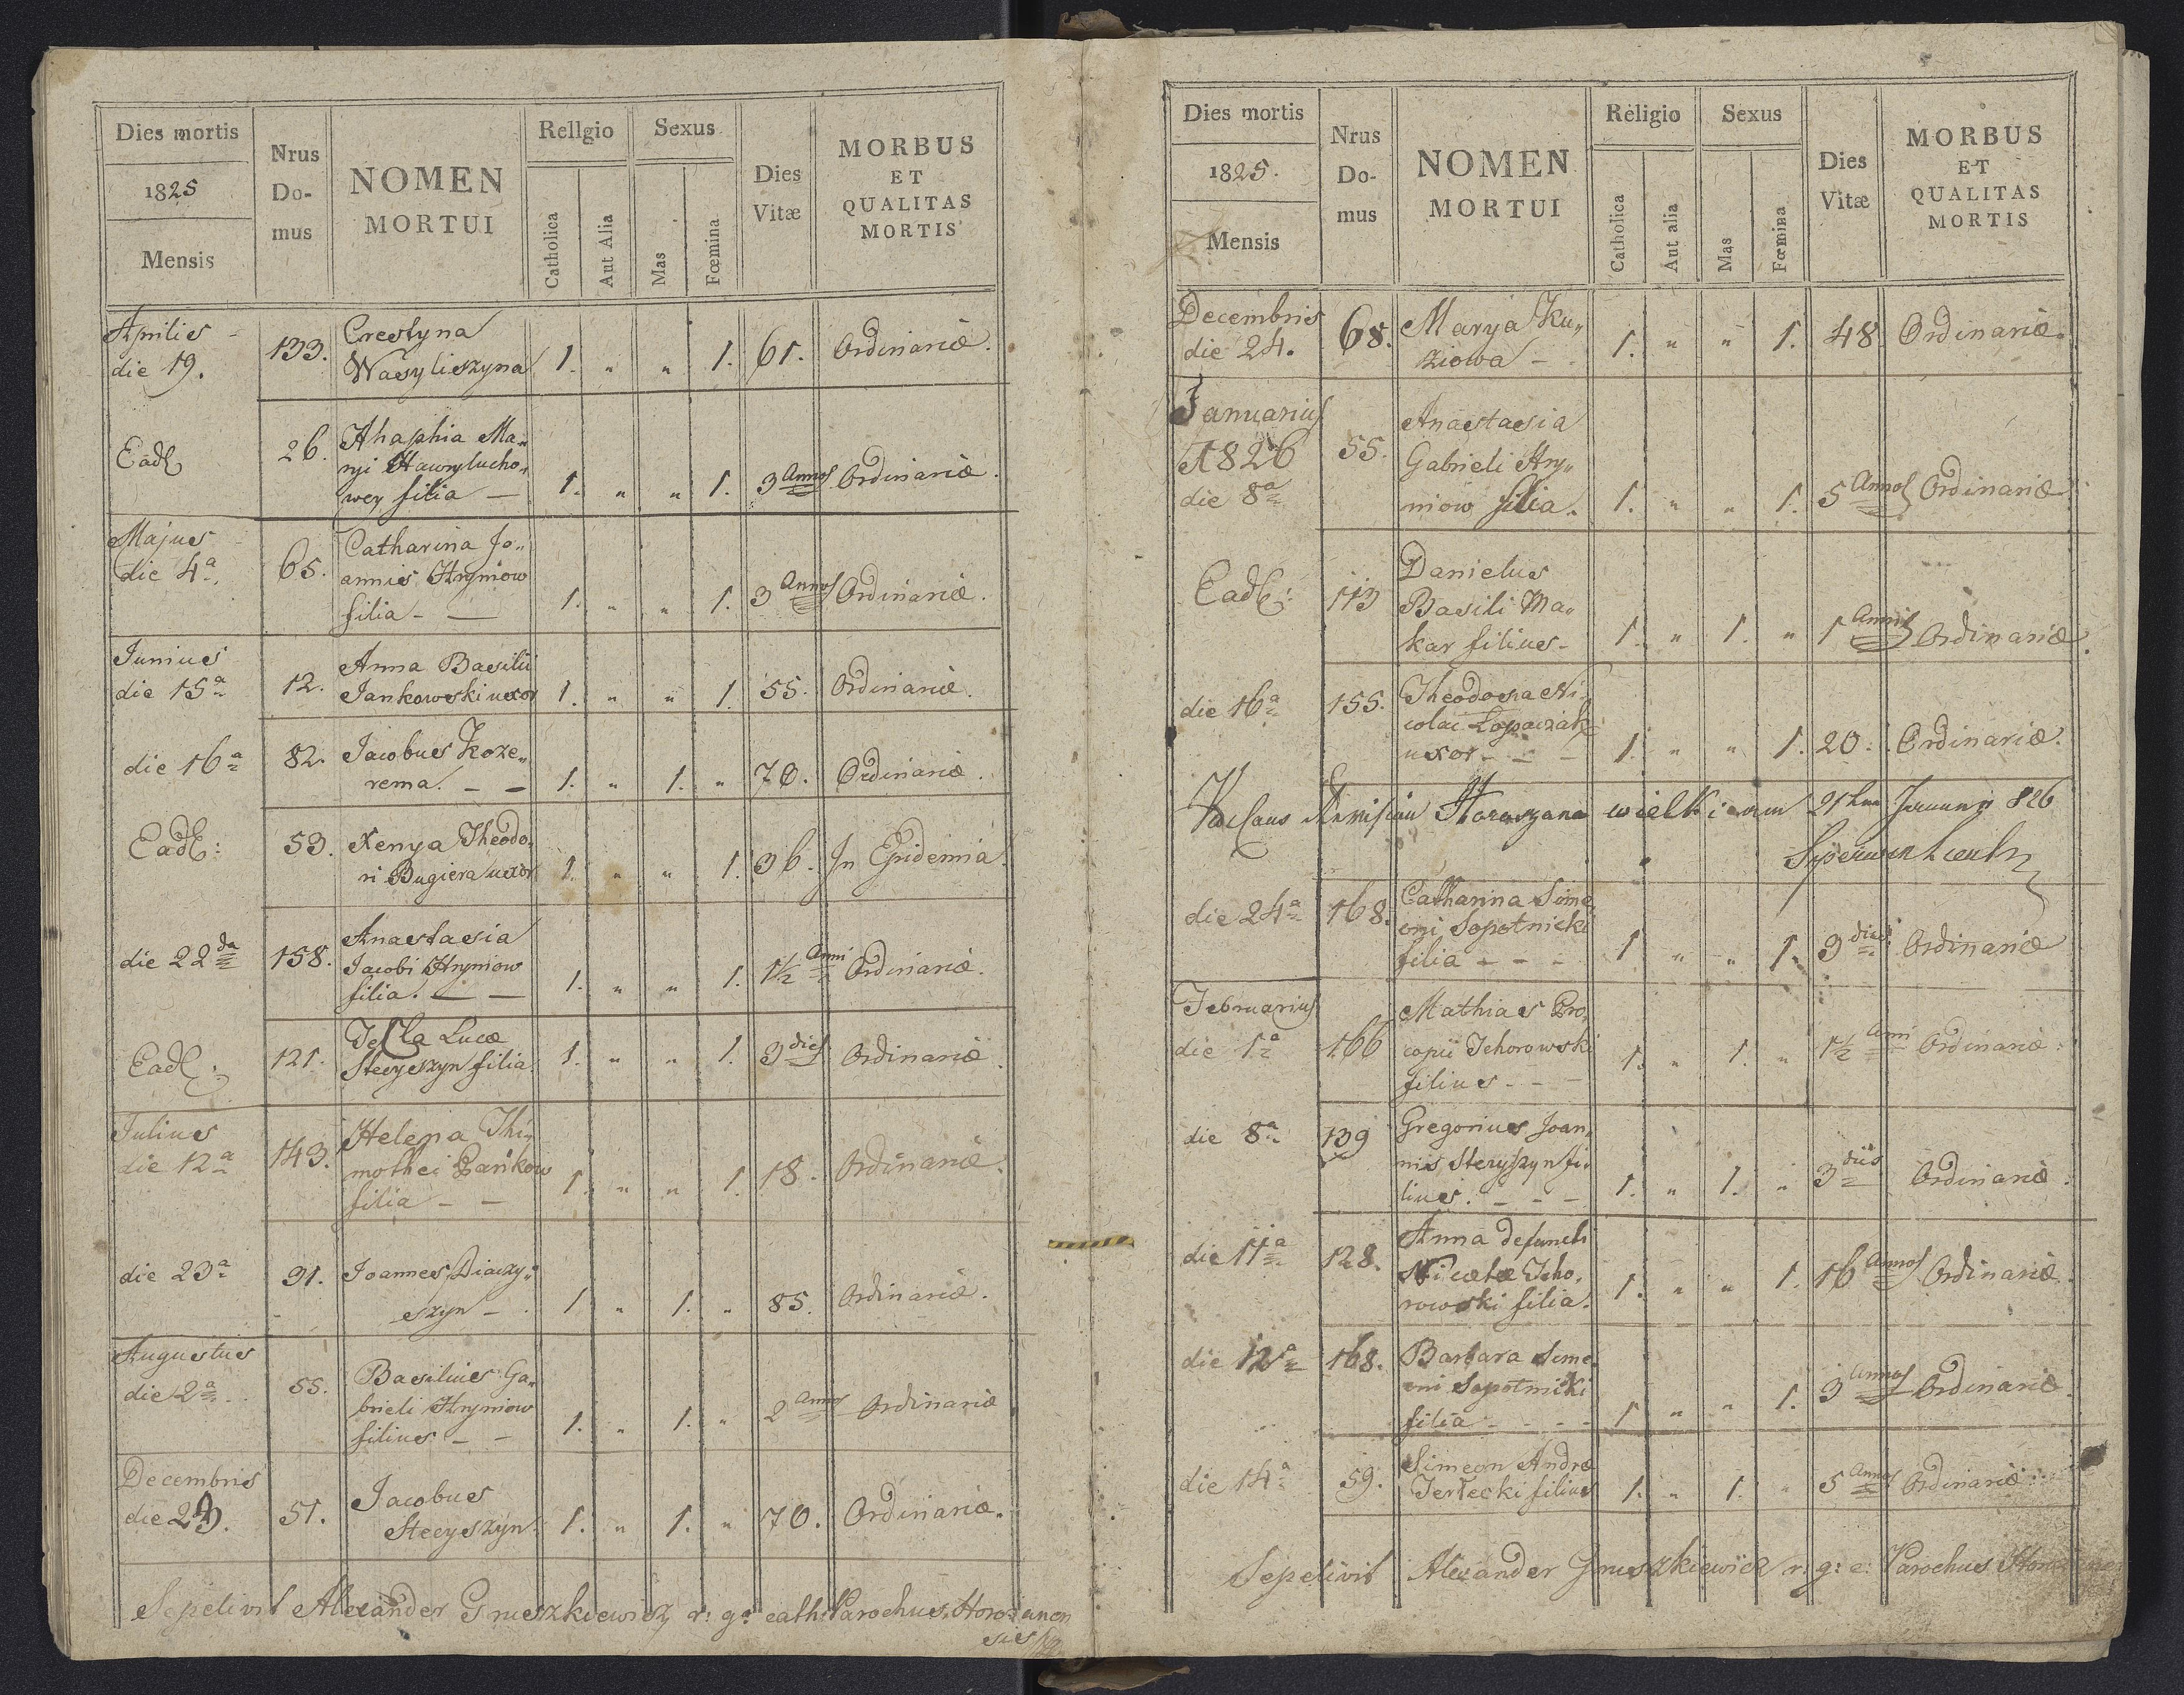 Dies mortis
1825
Mensis
Nrus
Do-
mus
NOMEN
MORTUI
Rellgio
Catholica
Aut Alia
Sexus
Mas
Fœmina
Dies
Vitæ
MORBUS
ET
QUALITAS
MORTIS
Aprilis
die 19.
133.
Crestyna
Wasyliszyna
1. " " 1. 61. Ordinariæ.
Eadē
26.
Ahaphia Ma„
ryi Hawrylucho„
wey filia —
1. " " 1. 3 Annos Ordinariæ.
Majus
die 4ª
65.
Catharina Jo„
annis Hryniow
filia - —
1. " " 1. 3 Annos Ordinariæ.
Junius
die 15ª
12.
Anna Basilii
Jankowski uxor
1. " " 1. 55. Ordinariæ.
die 16ª
82.
Jacobus Koze„
rema. - -
1. " 1. " 70. Ordinariæ.
Eadē:
53.
Xenya Theodo„
ri Bugiera uxor
1. " " 1. 36. In Epidemia.
die 22da
158.
Anastasia
Jacobi Hryniow
filia. — —
1. " " 1. 1½ Anni Ordinariæ.
Eadē:
121.
Tecla Lucæ
Stecyszyn filia.
1. " " 1. 3 dies Ordinariæ.
Julius
die 12ª
143.
Helena Thi„
mothei Pańkow
filia - -
1. " " 1. 18. Ordinariæ.
die 23ª
91.
Joannes Diaczy„
szyn - .
1 " 1. " 85. Ordinariæ.
Augustus
die 2ª
55.
Basilius Ga„
brieli Hryniow
filius - -
1. " 1. " 2 Annos Ordinariæ
Decembris
die 23.
51.
Jacobus
Stecyszyn.
1. " 1. " 70. Ordinariæ.
Sepelivit Alexander Gruszkiewicz r: g: cath: Parochus Horożanen
sis
Dies mortis
1825.
Mensis
Nrus
Do-
mus
NOMEN
MORTUI
Religio
Catholica
Aut alia
Sexus
Mas
Fœmina
Dies
Vitæ
MORBUS
ET
QUALITAS
MORTIS
Decembris
die 24.
68.
Marya Ku„
ziowa -
1. " " 1. 48 Ordinariæ.
Januarius
A 1826
die 8ª
55.
Anastasia
Gabrieli Hry„
niow filia.
1. " " 1. 5 Annos Ordinariæ
Eadē:
113
Danielus
Basili Ma„
kar filius -
1. " 1. " 1 Anni Ordinariæ.
die 16ª
155.
Theodosia Ni„
colai Łopaczak
uxor - - -
1. " " 1. 20. Ordinariæ.
Horozana wielki am 21ten January 826
die 24ª
168.
Catharina Sime„
oni Sopotnicki
filia - - -
1 " " 1. 3 dies Ordinariæ
Februarius
die 1ª
166
Mathias Pro„
copii Tchorowski
filius - - -
1. " 1. " 1½ Anni Ordinariæ.
die 8ª
139
Gregorius Joan„
nis Stecyszyn fi„
lius. - - -
1. " 1. " 3 diis Ordinariæ.
die 11ª
128.
Anna defuncti
Nicetæ Tcho„
rowski filia.
1. " " 1. 16 Annos Ordinariæ.
die 12ª
168.
Barbara Sime„
oni Sopotnicki
filia - - - -
1 " " 1. 3 Annos Ordinariæ.
die 14ª
59.
Simeon Andreæ
Terlecki filius
1. " 1. " 5 Annos Ordinariæ.
Sepelivit Alexander Gruszkiewicz r: g: c: Parochus